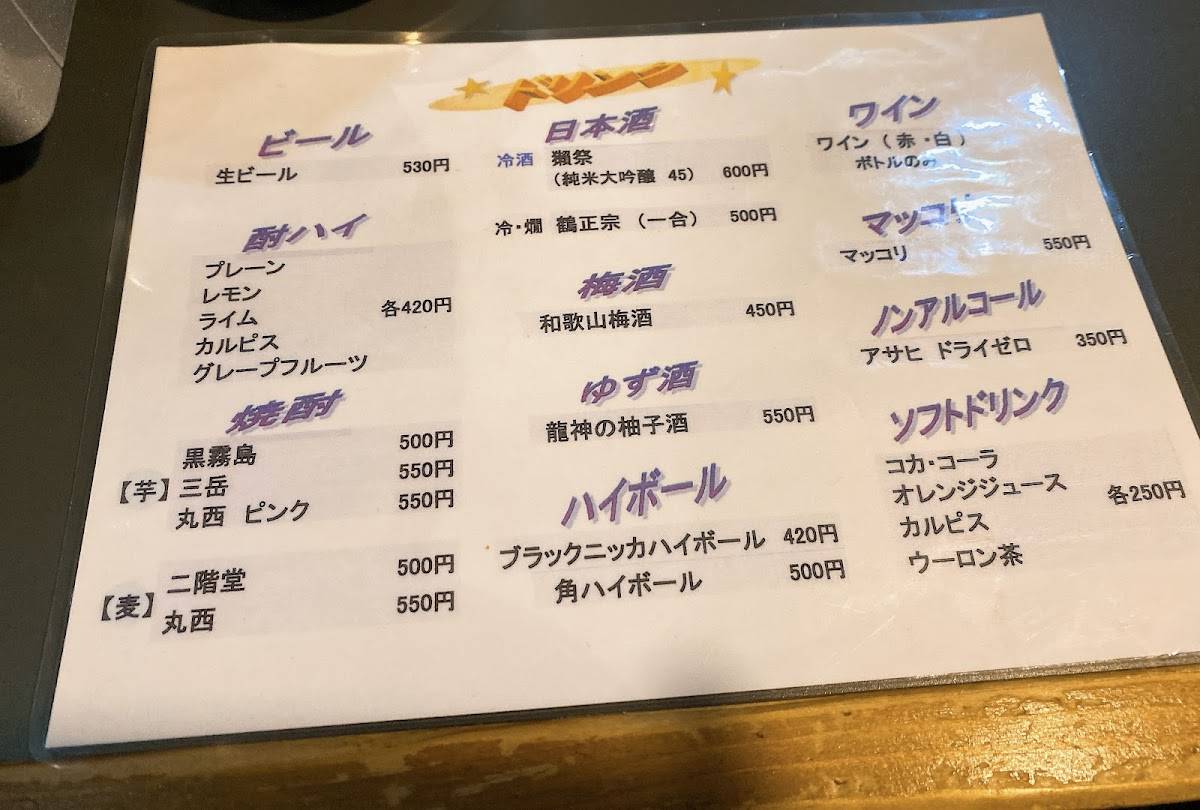 ドリンク
ビール
生ビール 530円
酎ハイ
プレーン
レモン
ライム 各420円
カルピス
グレープフルーツ
焼酎
黒霧島 500円
【芋】三岳 550円
丸西 ピンク 550円
二階堂 500円
【麦】
丸西 550円
日本酒
冷酒 獺祭
(純米大吟醸 45) 600円
冷・燗 鶴正宗 (一合) 500円
梅酒
和歌山梅酒 450円
ゆず酒
龍神の柚子酒 550円
ハイボール
ブラックニッカハイボール 420円
角ハイボール 500円
ワイン
ワイン (赤・白)
ボトルのみ
マッコリ
マッコリ 550円
ノンアルコール
アサヒ ドライゼロ 350円
ソフトドリンク
コカ・コーラ
オレンジジュース 各250円
カルピス
ウーロン茶